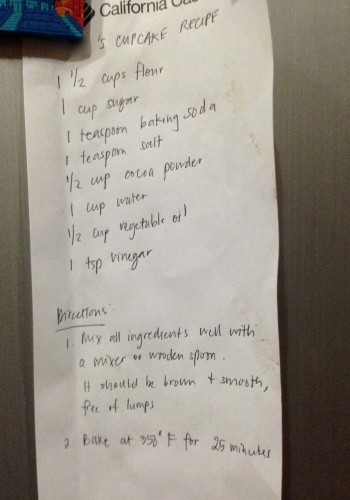 California
's CUPCAKE RECIPE
1 1/2 cups flour
1 cup sugar
1 teaspoon baking soda
1 teaspoon salt
1/2 cup cocoa powder
1 cup water
1/2 cup vegetable oil
1 tsp vinegar
Directions:
1. Mix all ingredients well with
a mixer or wooden spoon.
It should be brown + smooth,
free of lumps
2 Bake at 350° F for 25 minutes